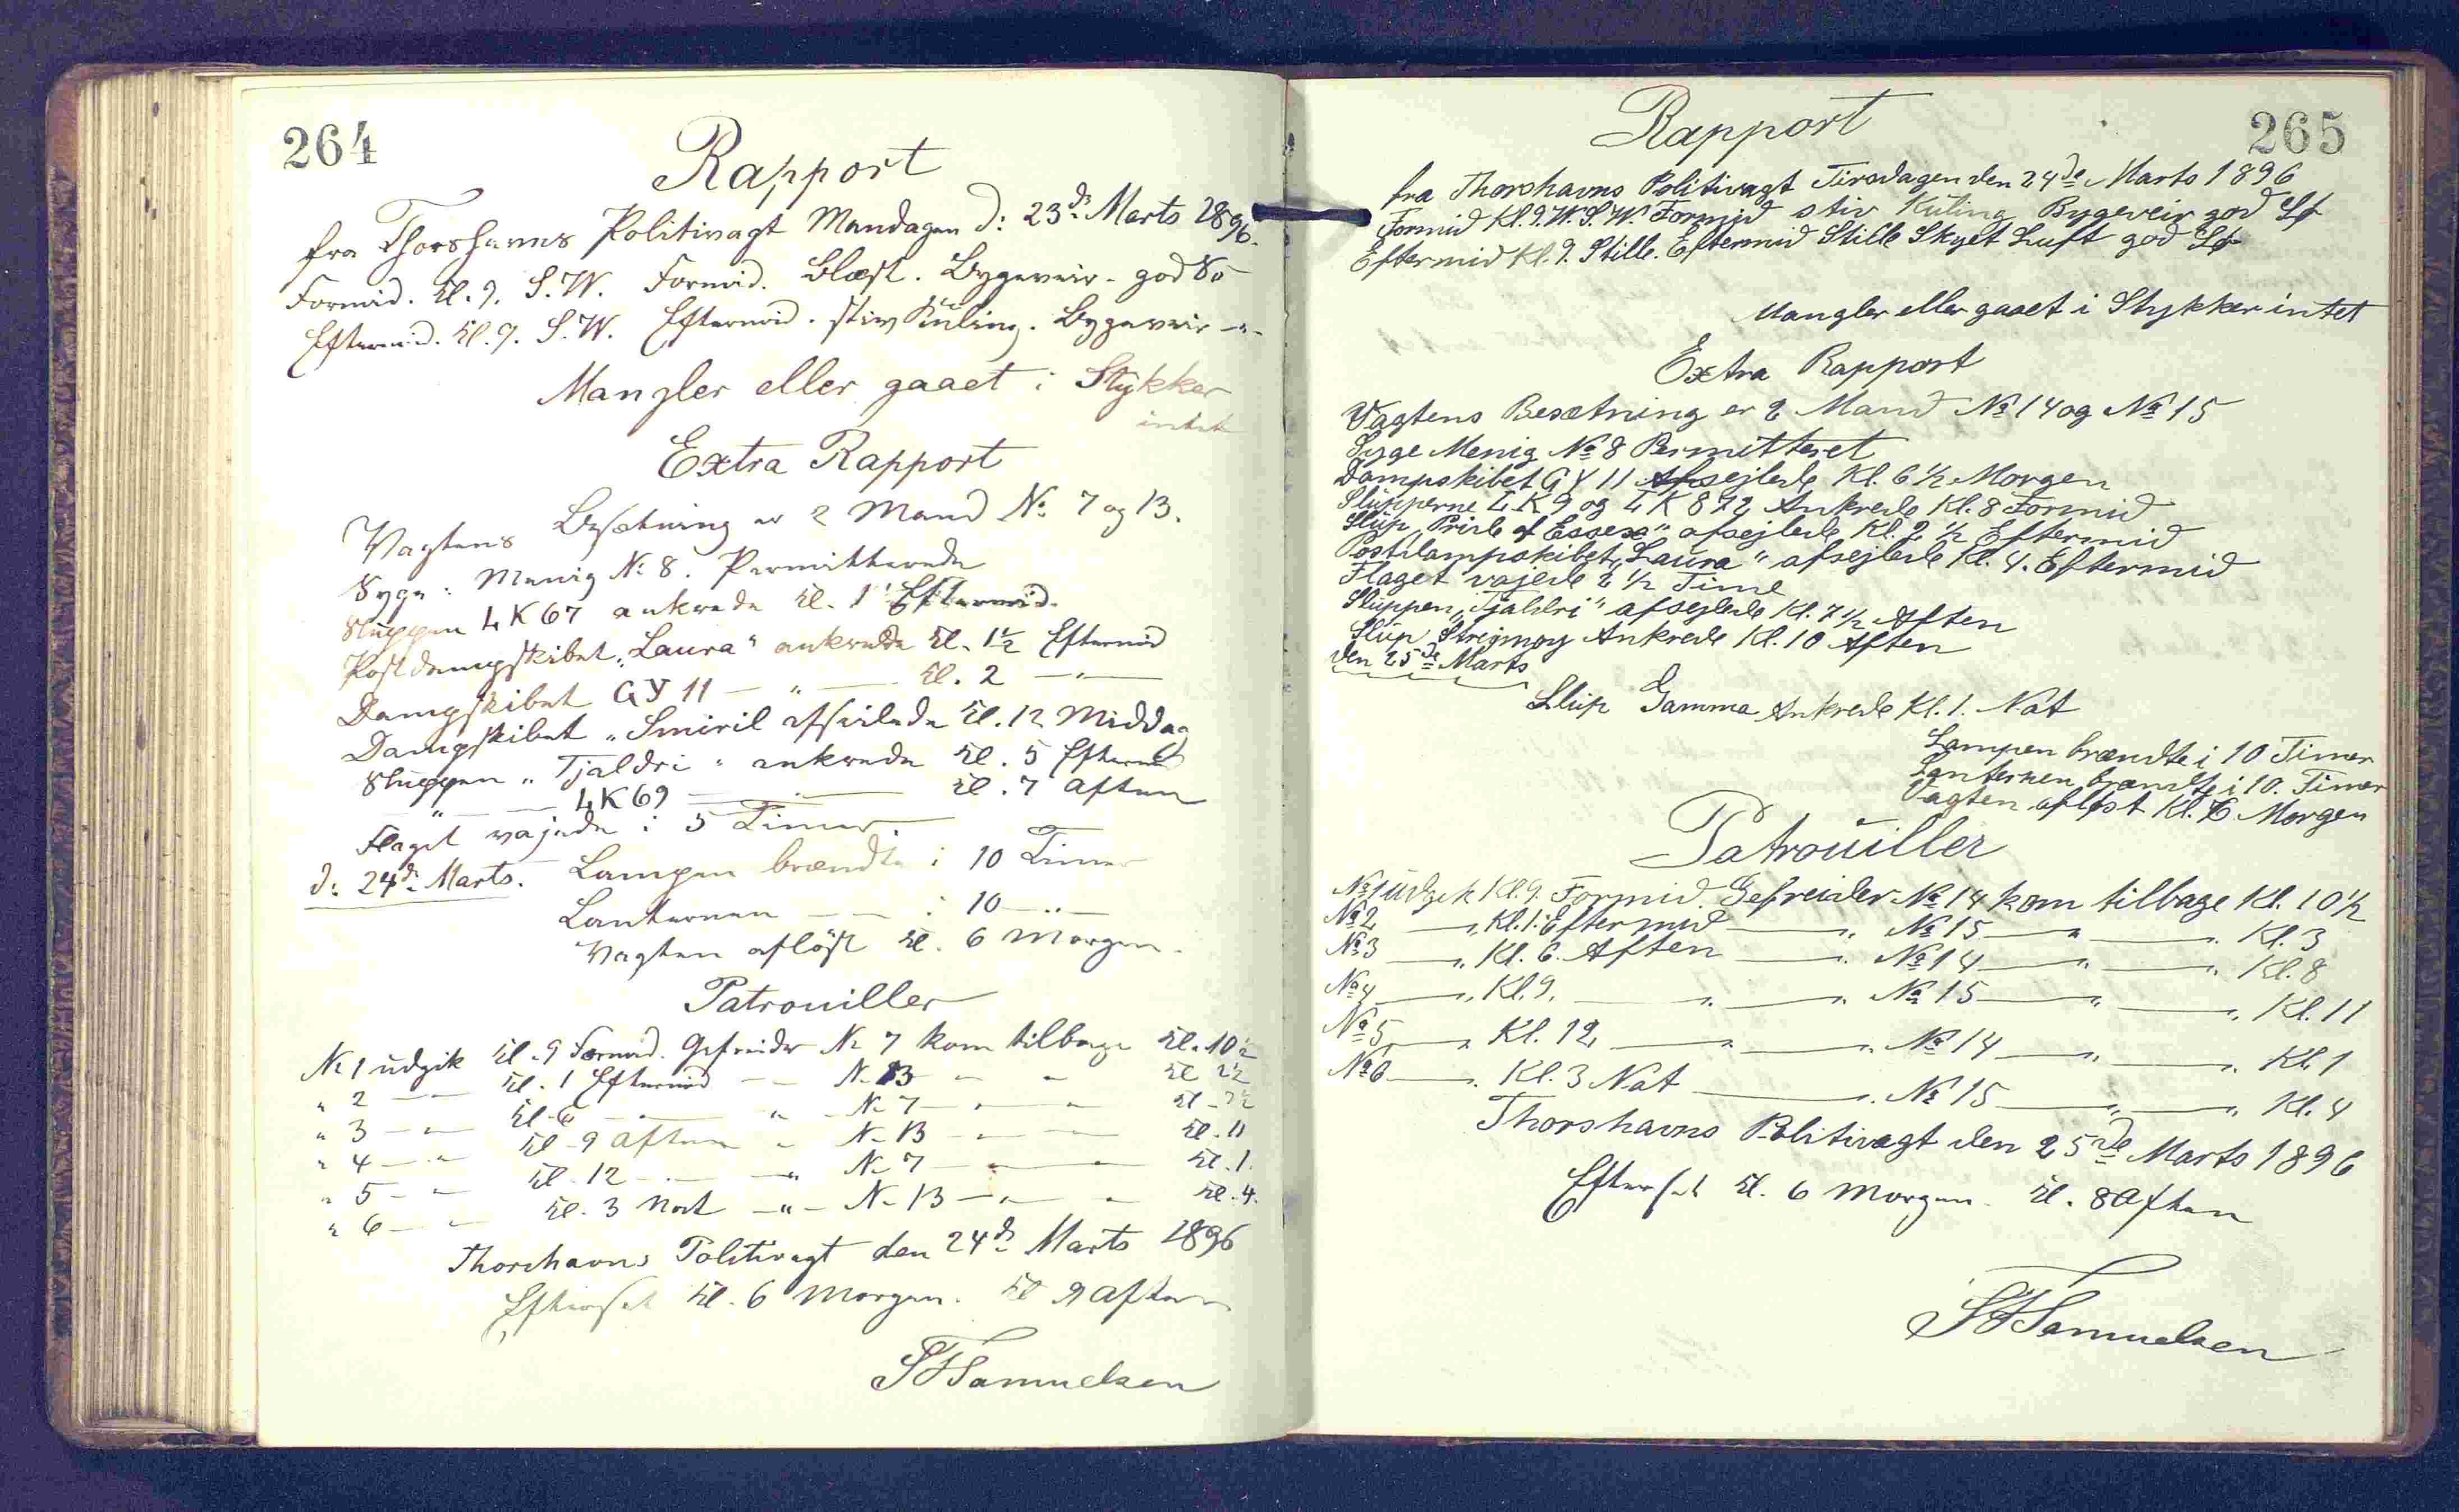 264
Rapport
fra Thorshavns Politivagt Mandagen d: 23d. Marts 1896.
Formid. Kl. 9. S.W. Formid. Blæst. Bygeveir - god Sö
Eftermid. Kl. 9. S.W. Eftermid. stiv Kuling. Bygeveir -"-
Mangler eller gaaet i Stykker
intet
Extra Rapport
Vagtens Besætning er 2 Mand No. 7 og 13.
Syge: Menig No. 8. Permitterede
Sluppen LK 67 ankrede Kl. 1 Eftermid.
Postdampskibet „Laura" ankrede Kl. 1½ Eftermid
Dampskibet GY 11 — " — Kl. 2 —"—
Dampskibet „Smiril afseilede Kl. 12 Middag
Sluppen „Tjaldri" ankrede Kl. 5 Eftermid
—"— LK 69 —"— Kl. 7 Aften
Flaget vajede i 5 Timer
d: 24d. Marts. Lampen brændte i 10 Timer
Lanternen — — i 10 —"—
Vagten aflöst Kl. 6 Morgen.
Patrouiller
No 1 udgik Kl. 9 Formid. Gefreider No 7 kom tilbage Kl. 10½
" 2 — — Kl. 1 Eftermid — — No 13 — " — Kl 2½
" 3 — " — Kl. 6 — " — " — No 7 — " — " Kl. 7½
" 4 — " — Kl. 9 Aften — " No 13 — " — Kl. 11
" 5 — " — Kl. 12 — " — " No 7 — " — " Kl. 1.
" 6 — " — Kl. 3 Nat —"— No 13 —"— " Kl. 4.
Thorshavns Politivagt den 24d. Marts 1896
Efterset Kl. 6 Morgen. Kl 9 Aften
Samuelsen
265
Rapport
fra Thorshavns Politivagt Tirsdagen den 24de Marts 1896
Formid Kl. 9. W.S.W. Formid stiv Kuling Bygeveir god Sø
Eftermid Kl. 9. Stille. Eftermid Stille Skyet Luft god Sø
Mangler eller gaaet i Stykker intet
Extra Rapport
Vagtens Besætning er 2 Mand No 14 og No 15
Syge Menig No 8 Permitteret
Dampskibet GY 11 Afsejlede Kl. 6½ Morgen
Slupperne LK 9 og LK 872 Ankrede Kl. 8 Formid
Slup „Pride of Essex" afsejlede Kl. 2½ Eftermid
Postdampskibet „Laura" afsejlede Kl. 4. Eftermid
Flaget vajede 2½ Time
Sluppen „Tjaldri" afsejlede Kl. 7½ Aften
Slup Streimoy Ankrede Kl. 10 Aften
den 25de Marts
Slup Gamma Ankrede Kl. 1. Nat
Lampen brændte i 10 Timer
Lanternen brændte i 10. Timer
Vagten afløst Kl. 6 Morgen
Patrouiller
No 1 udgik Kl. 9. Formid. Gefreider No 14 kom tilbage Kl. 10½
No 2 — " Kl. 1. Eftermid — " No 15 — " — " Kl. 3
No 3 — " Kl. 6. Aften — " No 14 — " — " Kl. 8
No 4 — " Kl. 9. — " — " No 15 — " — " Kl. 11
No 5 — " Kl. 12, — " — " No 14 — " — " Kl. 1
No 6 — " Kl. 3 Nat — " No 15 — " — " Kl. 4
Thorshavns Politivagt den 25de Marts 1896
Efterset Kl. 6 Morgen. Kl. 8 Aften
Samuelsen